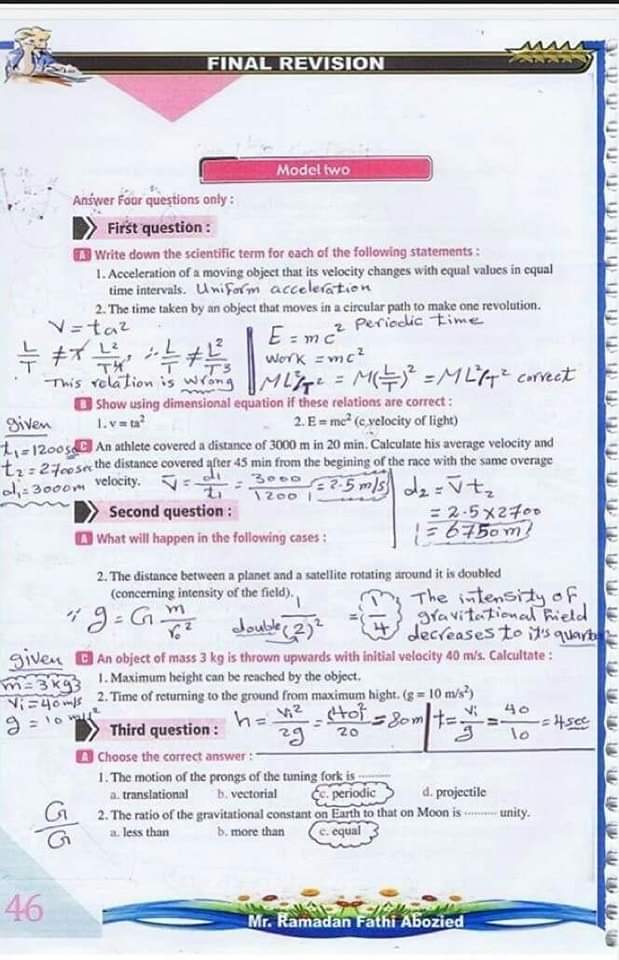 FINAL REVISION
Model two
Answer Four questions only :
First question :
A Write down the scientific term for each of the following statements :
1. Acceleration of a moving object that its velocity changes with equal values in equal
time intervals. Uniform acceleration
2. The time taken by an object that moves in a circular path to make one revolution.
Periodic time
V = ta²
E = mc²
work = mc²
This relation is wrong
ML²/T² = M(L/T)² = ML²/T² correct
B Show using dimensional equation if these relations are correct :
1. v = ta² 2. E = mc² (c, velocity of light)
given
t₁ = 1200 sec
t₂ = 2700 sec
d₁ = 3000 m
C An athlete covered a distance of 3000 m in 20 min. Calculate his average velocity and
the distance covered after 45 min from the begining of the race with the same overage
velocity. V̄ = d₁/t₁ = 3000/1200 = 2.5 m/s
d₂ = V̄ t₂
= 2.5 × 2700
= 6750 m
Second question :
A What will happen in the following cases :
2. The distance between a planet and a satellite rotating around it is doubled
(concerning intensity of the field).
∵ g = G m/r₀² double 1/(2)² = 1/4
The intensity of
gravitational field
decreases to it's quarter
given
m = 3 kg
vi = 40 m/s
g = 10 m/s²
C An object of mass 3 kg is thrown upwards with initial velocity 40 m/s. Calcultate :
1. Maximum height can be reached by the object.
2. Time of returning to the ground from maximum hight. (g = 10 m/s²)
h = vi²/2g = (40)²/20 = 80m t = vi/g = 40/10 = 4 sec
Third question :
A Choose the correct answer :
1. The motion of the prongs of the tuning fork is ..........
a. translational b. vectorial c. periodic d. projectile
G/G
2. The ratio of the gravitational constant on Earth to that on Moon is .......... unity.
a. less than b. more than c. equal
46
Mr. Ramadan Fathi Abozied